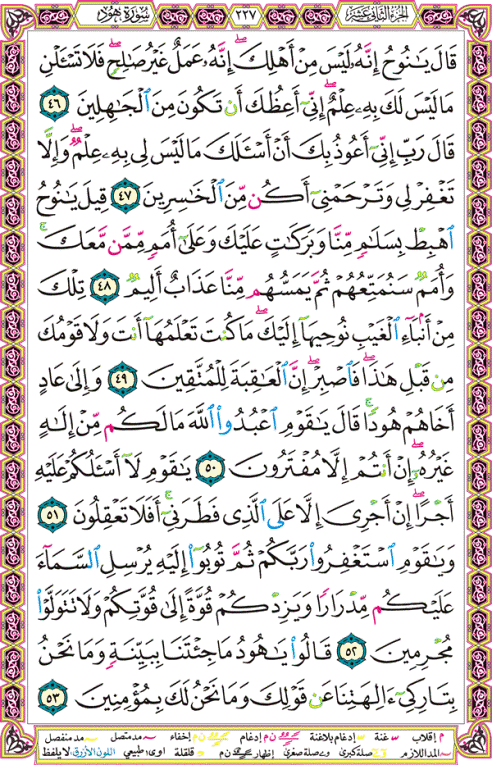 الجزء الثاني عشر ٢٢٧ سورة هود
قَالَ يَانُوحُ إِنَّهُ لَيْسَ مِنْ أَهْلِكَ إِنَّهُ عَمَلٌ غَيْرُ صَالِحٍ فَلَا تَسْئَلْنِ
مَا لَيْسَ لَكَ بِهِ عِلْمٌ إِنِّي أَعِظُكَ أَن تَكُونَ مِنَ الْجَاهِلِينَ ٤٦
قَالَ رَبِّ إِنِّي أَعُوذُ بِكَ أَنْ أَسْئَلَكَ مَا لَيْسَ لِي بِهِ عِلْمٌ وَإِلَّا
تَغْفِرْ لِي وَتَرْحَمْنِي أَكُن مِّنَ الْخَاسِرِينَ ٤٧ قِيلَ يَانُوحُ
اهْبِطْ بِسَلَامٍ مِّنَّا وَبَرَكَاتٍ عَلَيْكَ وَعَلَى أُمَمٍ مِّمَّن مَّعَكَ
وَأُمَمٌ سَنُمَتِّعُهُمْ ثُمَّ يَمَسُّهُم مِّنَّا عَذَابٌ أَلِيمٌ ٤٨ تِلْكَ
مِنْ أَنبَاءِ الْغَيْبِ نُوحِيهَا إِلَيْكَ مَا كُنتَ تَعْلَمُهَا أَنتَ وَلَا قَوْمُكَ
مِن قَبْلِ هَذَا فَاصْبِرْ إِنَّ الْعَاقِبَةَ لِلْمُتَّقِينَ ٤٩ وَإِلَى عَادٍ
أَخَاهُمْ هُودًا قَالَ يَاقَوْمِ اعْبُدُوا اللَّهَ مَا لَكُم مِّنْ إِلَهٍ
غَيْرُهُ إِنْ أَنتُمْ إِلَّا مُفْتَرُونَ ٥٠ يَاقَوْمِ لَا أَسْئَلُكُمْ عَلَيْهِ
أَجْرًا إِنْ أَجْرِيَ إِلَّا عَلَى الَّذِي فَطَرَنِي أَفَلَا تَعْقِلُونَ ٥١
وَيَاقَوْمِ اسْتَغْفِرُوا رَبَّكُمْ ثُمَّ تُوبُوا إِلَيْهِ يُرْسِلِ السَّمَاءَ
عَلَيْكُم مِّدْرَارًا وَيَزِدْكُمْ قُوَّةً إِلَى قُوَّتِكُمْ وَلَا تَتَوَلَّوْا
مُجْرِمِينَ ٥٢ قَالُوا يَاهُودُ مَا جِئْتَنَا بِبَيِّنَةٍ وَمَا نَحْنُ
بِتَارِكِي آلِهَتِنَا عَن قَوْلِكَ وَمَا نَحْنُ لَكَ بِمُؤْمِنِينَ ٥٣
م إقلاب غنة إدغام بلاغنة ن م إدغام ن م إخفاء مد متصل مد منفصل
المد اللازم وصلة صغرى إظهار ن م قلقلة اوى: طبيعي اللون الأزرق: لا يلفظ